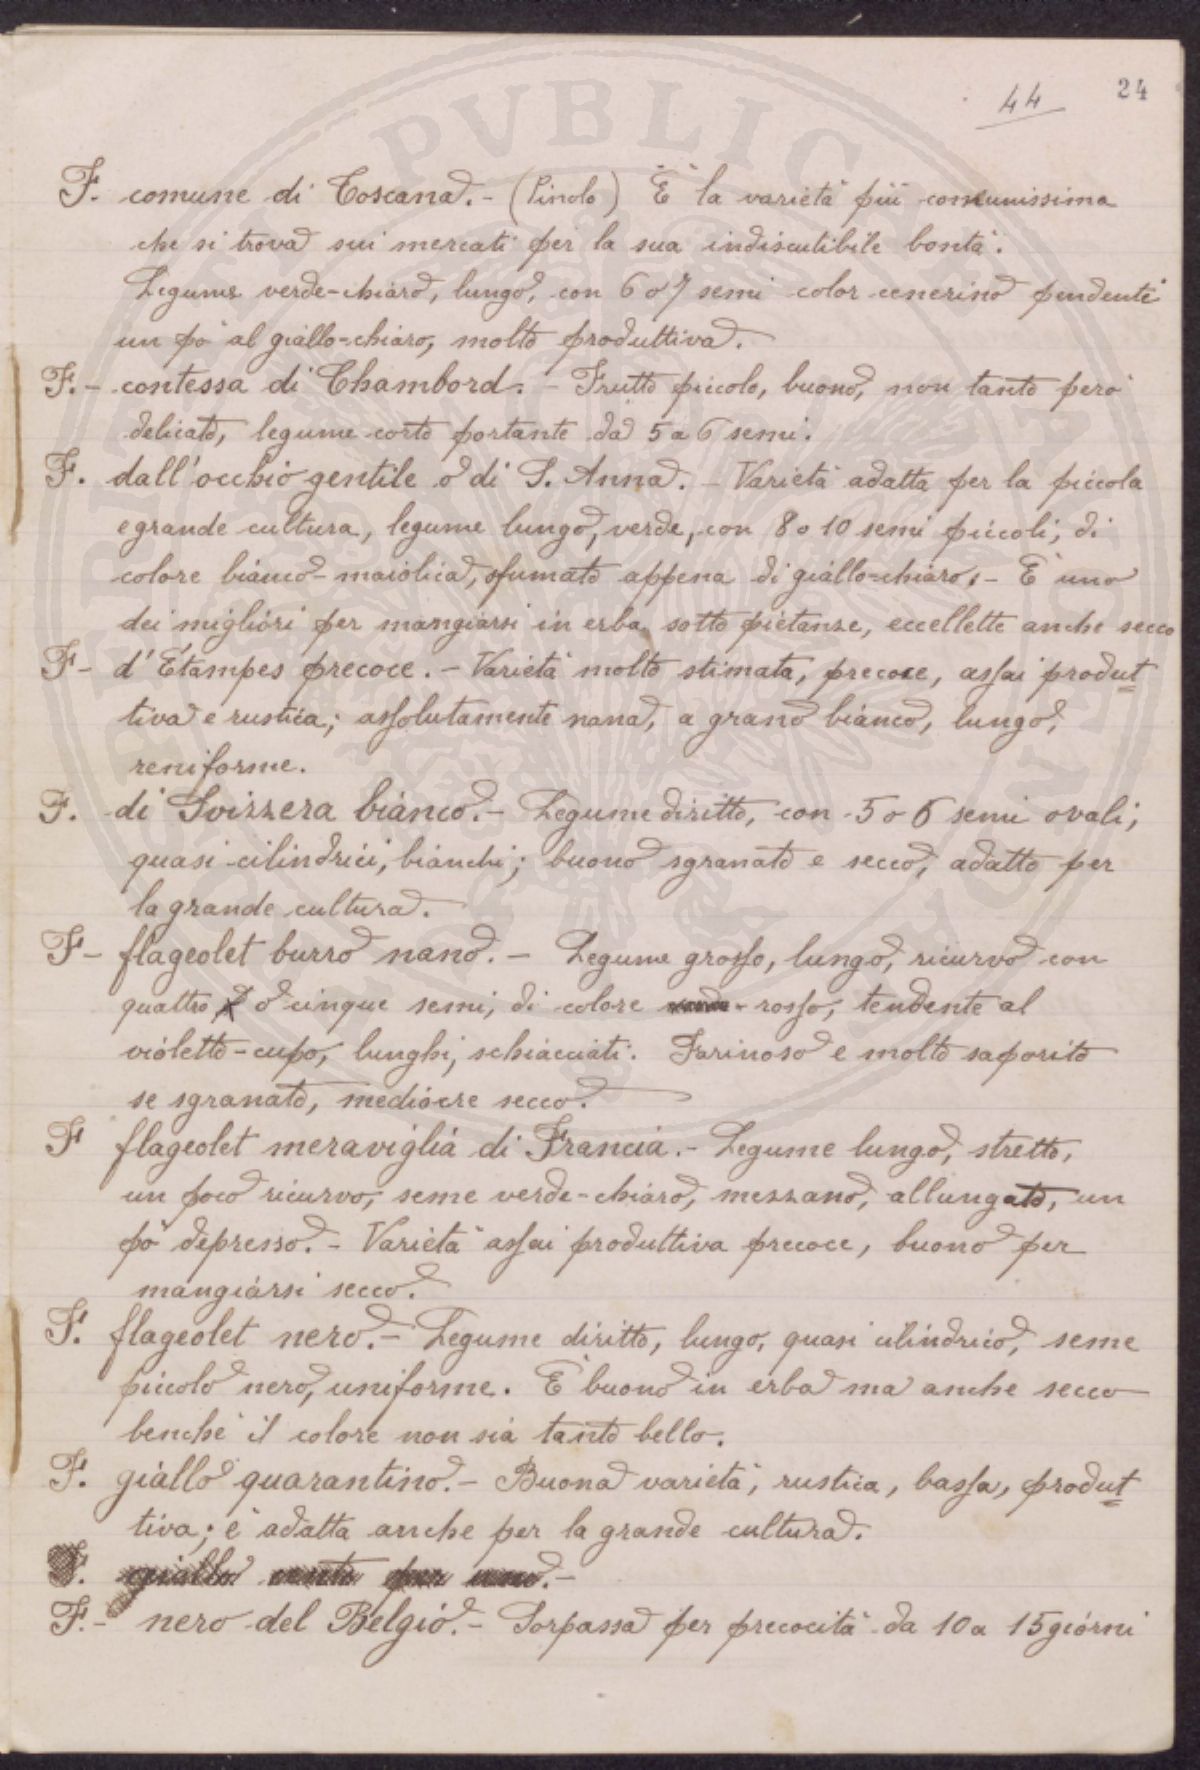 24
44
F. comune di Toscana. - (Pinolo) È la varietà più comunissima
che si trova sui mercati per la sua indiscutibile bontà.
Legume verde-chiaro, lungo, con 6 o 7 semi color cenerino pendente
un pò al giallo-chiaro, molto produttiva.
F. - contessa di Chambord. - Frutto piccolo, buono, non tanto però
delicato, legume corto portante da 5 a 6 semi.
F. dall'occhio gentile o di S. Anna. - Varietà adatta per la piccola
e grande cultura, legume lungo, verde, con 8 o 10 semi piccoli, di
colore bianco-maiolica, sfumato appena di giallo-chiaro. - È uno
dei migliori per mangiarsi in erba, sotto pietanze, eccellette anche secco
F - d'Étampes precoce. - Varietà molto stimata, precoce, assai produt
tiva e rustica; assolutamente nana, a grano bianco, lungo,
reniforme.
F. di Svizzera bianco. - Legume diritto, con 5 o 6 semi ovali,
quasi cilindrici, bianchi; buono sgranato e secco, adatto per
la grande cultura.
F - flageolet burro nano. - Legume grosso, lungo, ricurvo con
quattro o cinque semi, di colore - rosso, tendente al
violetto-cupo, lunghi, schiacciati. Farinoso e molto saporito
se sgranato, mediocre secco.
F flageolet meraviglia di Francia. - Legume lungo, stretto,
un poco ricurvo, seme verde-chiaro, mezzano, allungato, un
pò depresso. - Varietà assai produttiva precoce, buono per
mangiarsi secco.
F. flageolet nero. - Legume diritto, lungo, quasi cilindrico, seme
piccolo nero, uniforme. È buono in erba ma anche secco
benchè il colore non sia tanto bello.
F. giallo quarantino. - Buona varietà, rustica, bassa, produt
tiva; è adatta anche per la grande cultura.
F. giallo cento per uno. -
F. - nero del Belgio. - Sorpassa per precocità da 10 a 15 giorni